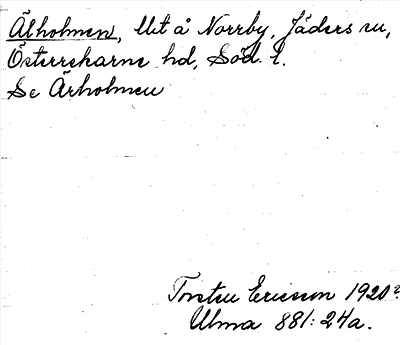 Älholmen, Ut å Norrby, Jäders sn,
Österrekarne hd, Söd. l.
Se Ärholmen
Torsten Ericsson 1920?
Ulma 881:24a.